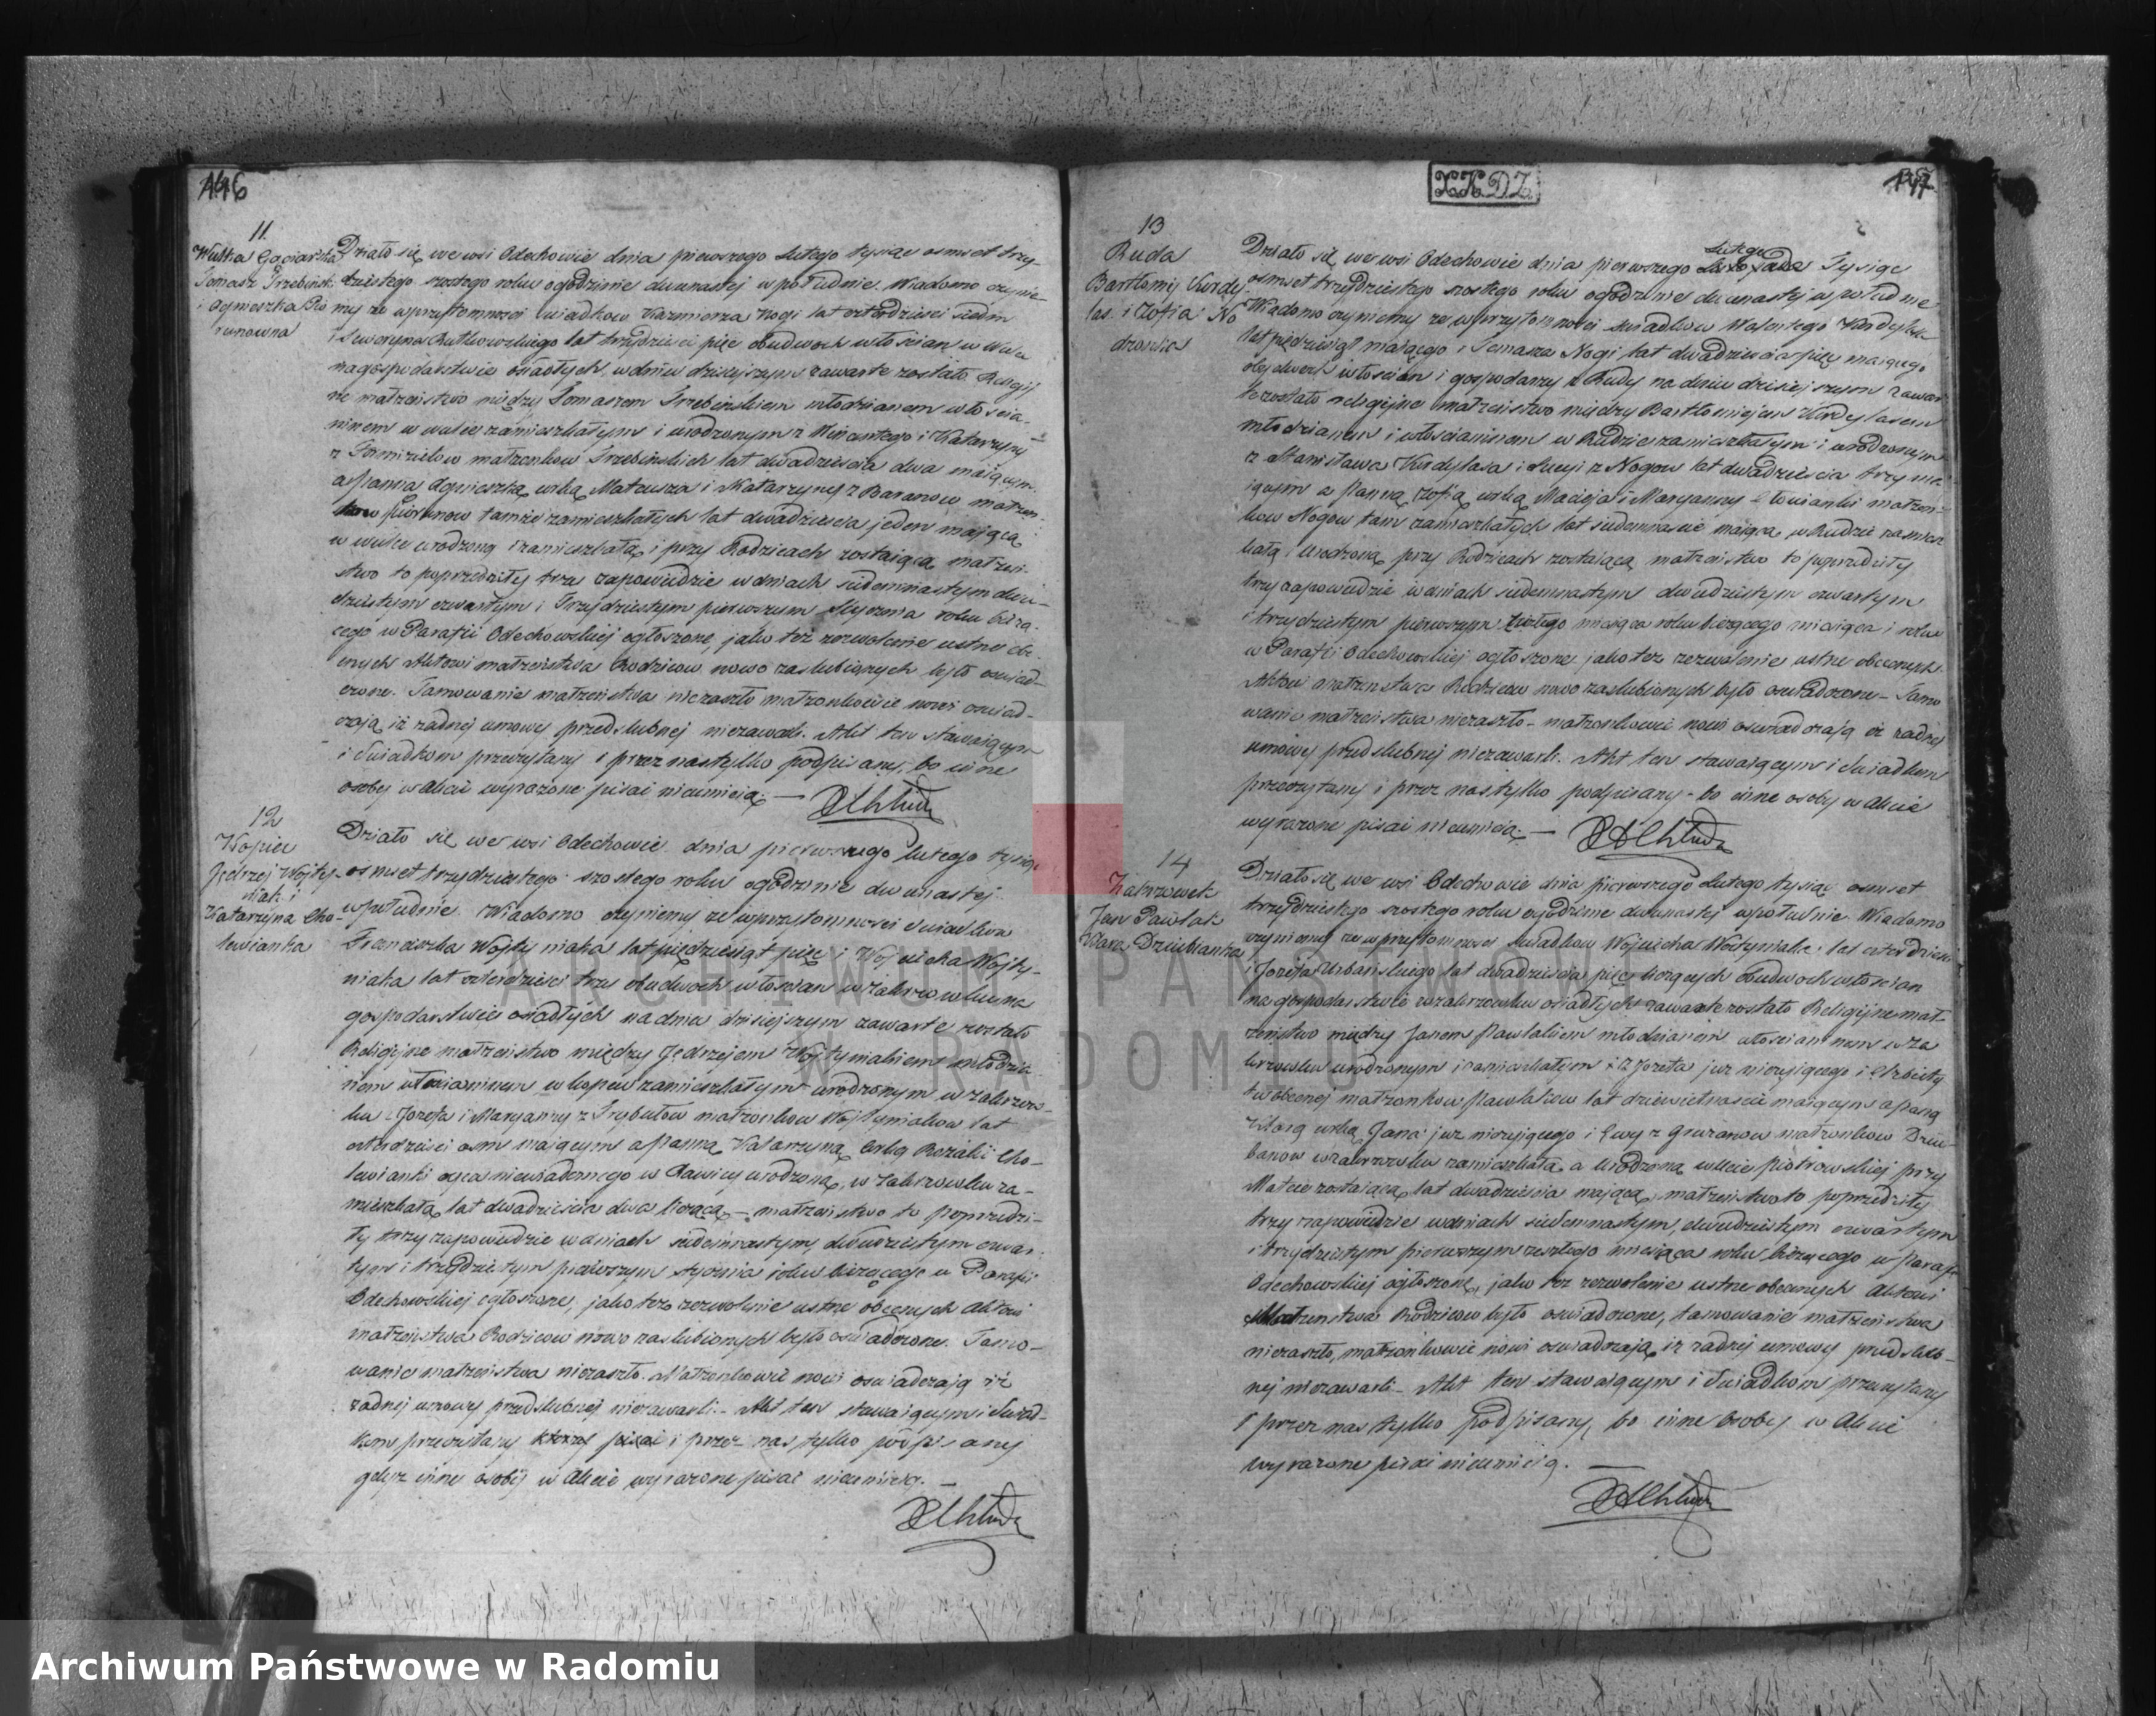 146
11.
Wulka Gąciarska
Tomasz Trzebiński
i Agnieszka Pio
runowna
Działo się we wsi Odechowie dnia pierwszego Lutego tysiąc osmset trzy-
dziestego szostego roku o godzinie dwunastej w południe. Wiadomo czynie-
my ze w przytomnosci swiadkow Kazimierza Nogi lat czterdziesci siedm
i Seweryna Rutkowskiego lat trzydziesci pięc obudwoch włoscian w Wulce
na gospodarstwie osiadłych, w dniu dzisiejszym zawarte zostało Religij
ne małzenstwo między Tomaszem Trzebinskiem młodzianem włoscia-
ninem w wulce zamieszkałym i urodzonym z Wincentego i Katarzyny
z małzonkow Trzebinskich lat dwadziescia dwa maiącym
a Panna Agnieszką corką Mateusza i Katarzyny z Baranow małzon-
kow Piorunow tamze zamieszkałych lat dwadziescia jeden mającą
w wulce urodzoną i zamieszkałą i przy Rodzicach zostaiącą małzen-
stwo to poprzedziły trzy zapowiedzie w dniach siedemnastym dwu-
dziestym czwartym i Trzydziestym pierwszym Stycznia roku bieza-
cego w Parafii Odechowskiej ogłoszone, jako tez zezwolenie ustne ob-
cnych Aktowi małzenstwa Rodzicow nowo zaslubionych było oswiad-
czone. Tamowanie małzenstwa niezaszło małzonkowie nowi oswiad-
czają iz zadnej umowy przedslubnej niezawarli. Akt ten stawaiącym
i Swiadkom przeczytany i przez nas tylko podpisany, bo inne
osoby w akcie wyrazone pisac nieumieią. —
12
Kopiec
Jędrzej Wojty-
niak i
Katarzyna Cho-
lewianka
Działo się we wsi Odechowie dnia pierwszego lutego tysiąc
osmset trzydziestego szostego roku o godzinie dwunastej
w południe. Wiadomo czyniemy ze w przytomnosci Swiadkow
Franciszka Wojtyniaka lat pięcdziesiąt pięc i Wojciecha Wojty-
niaka lat czterdziesci trzy obudwoch włoscian w Zakrzowku na
gospodarstwie osiadłych na dniu dzisiejszym zawarte zostało
Religijne małzenstwo między Jędrzejem Wojtyniakiem młodzia-
nem włoscianinem w kopcu zamieszkałym urodzonym w Zakrzow-
ku z Jozefa i Maryanny z Trybułow małzonkow Wojtyniakow lat
osm maiącym a Panną Katarzyną Corką Rozalii Cho-
lewianki oyca niewiadomego w urodzoną, w Zakrzowku za-
mieszkałą lat dwadziescia dwa liczącą — małzenstwo to poprzedzi-
ły trzy zapowiedzie w dniach siedemnastym, dwudziestym czwar-
tym i trzydziestym pierwszym stycznia roku biezącego w Parafii
Odechowskiej ogłoszone, jako tez zezwolenie ustne obecnych aktowi
małzenstwa Rodzicow nowo zaslubionych było oswiadczone. Tamo-
wanie małzenstwa niezaszło. Małzonkowie nowi oswiadczają iz
zadnej umowy przedslubnej niezawarli. Akt ten stawaiącym i Swiad-
kom przeczytany i przez nas tylko podpisany
gdyz inne osoby w akcie wyrazone pisac nieumieią. —
XKDZ
147
13
Ruda
Bartłomij Kurdy-
las i Zofia No
dzowna
Działo się we wsi Odechowie dnia pierwszego Lutego Tysiąc
osmset trzydziestego szostego roku o godzinie dwunastej w południe
Wiadomo czyniemy ze w przytomnosci swiadkow Walentego Kurdylasa
lat pięcdziesiąt maiącego i Tomasza Nogi lat dwadziescia pięc maiącego
obydwoch włoscian i gospodarzy z Rudy na dniu dzisiejszym zawar
te zostało religijne małzenstwo między Bartłomiejem Kurdylasem
młodzianem i włoscianinem w Rudzie zamieszkałym i urodzonym
z Stanisława Kurdylasa i Łucyi z Nogow lat dwadziescia trzy ma
iącym a Panną Zofią corką Macieja i Maryanny małzon-
kow Nogow tam zamieszkałych lat siedemnascie maiącą w Rudzie zamiesz
kałą i urodzoną przy Rodzicach zostaiącą małzenstwo to poprzedziły
trzy zapowiedzie w dniach siedemnastym dwudziestym czwartym
i trzydziestym pierwszym miesiąca roku biezącego miesiąca i roku
w Parafii Odechowskiej ogłoszone jako tez zezwolenie ustne obecnych
Aktowi małzenstwa Rodzicow nowo zaslubionych było oswiadczone — Tamo
wanie małzenstwa niezaszło — małzonkowie nowi oswiadczają iz zadnej
umowy przedslubnej niezawarli. Akt ten stawaiącym i Swiadkom
przeczytany i przez nas tylko podpisany — bo inne osoby w akcie
wyrazone pisac nieumieią. —
14
Zakrzowek
Jan Pawlak
Klara Dziubianka
Działo się we wsi Odechowie dnia pierwszego Lutego tysiąc osmset
trzydziestego szostego roku o godzinie dwunastej w południe. Wiadomo
czyniemy ze w przytomnosci Swiadkow Wojciecha Wojtyniaka lat czterdziesci
i Jozefa Urbanskiego lat dwadziescia pięc liczących obudwoch włoscian
na gospodarstwie w zakrzowku osiadłych zawarte zostało Religijne mał-
zenstwo między Janem Pawlakiem młodzianem włoscianinem w Za
krzowku urodzonym i zamieszkałym z Jozefa juz niezyiącego i Elzbiety
tu obecnej małzonkow Pawlakow lat dziewietnascie maiącym a Panną
Klarą corką Jana juz niezyiącego i Ewy z małzonkow Dziu-
banow w zakrzowku zamieszkałą a Urodzoną w Woli piotrowskiej przy
Matce zostaiącą lat dwadziescia mającą, małzenstwo to poprzedziły
trzy zapowiedzie w dniach siedemnastym, dwudziestym czwartym
i trzydziestym pierwszym zeszłego miesiąca roku biezącego w Paraf-
Odechowskiej ogłoszone, jako tez zezwolenie ustne obecnych Aktowi
Małzenstwa Rodzicow było oswiadczone, tamowanie małzenstwa
niezaszło, małzonkowie nowi oswiadczają iz zadnej umowy przedslub-
nej niezawarli — Akt ten stawaiącym i Swiadkom przeczytany
i przez nas tylko podpisany, bo inne osoby w Akcie
wyrazone pisac nieumieią. —
ARCHIWUM PAŃSTWOWE
W RADOMIU
Archiwum Państwowe w Radomiu